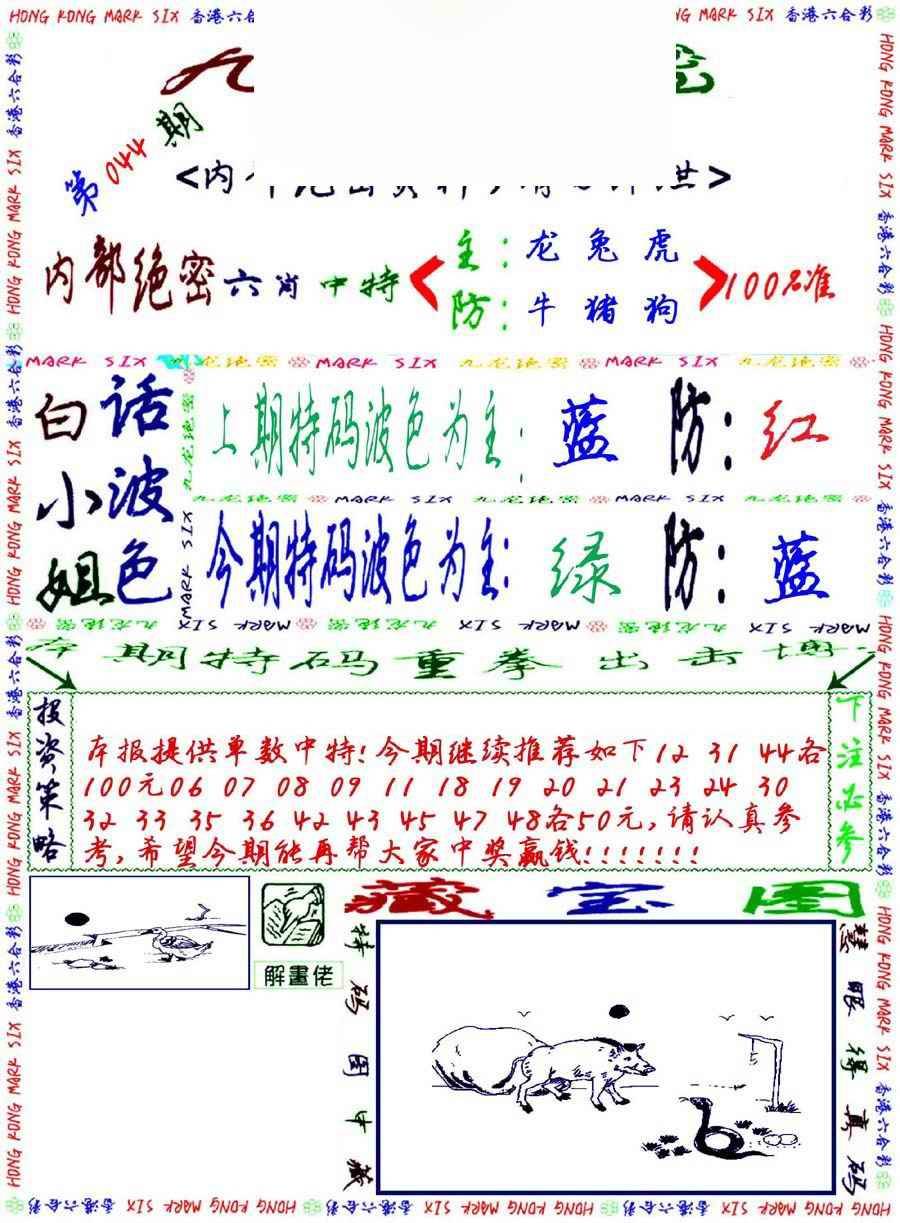 HONG KONG MARK SIX 香港六合彩
九
第044期
<内
世>
内部绝密六肖中特
主：龙兔虎
防：牛猪狗
100%准
MARK SIX 九龙绝密 MARK SIX 九龙绝密 MARK SIX 九龙绝密
白话小姐
波色
上期特码波色为主：蓝 防：红
九龙绝密 MARK SIX 九龙绝密 MARK SIX 九龙绝密
今期特码波色为主：绿 防：蓝
九龙绝密 MARK SIX 九龙绝密 MARK SIX 九龙绝密 MARK SIX
本期特码重拳出击
投资策略
本报提供单数中特!今期继续推荐如下12 31 44各
100元06 07 08 09 11 18 19 20 21 23 24 30
32 33 35 36 42 43 45 47 48各50元,请认真参
考,希望今期能再帮大家中奖赢钱!!!!!!!
下注必参
解畫佬
藏宝图
特码图中藏
慧眼得真码
HONG KONG MARK SIX 香港六合彩